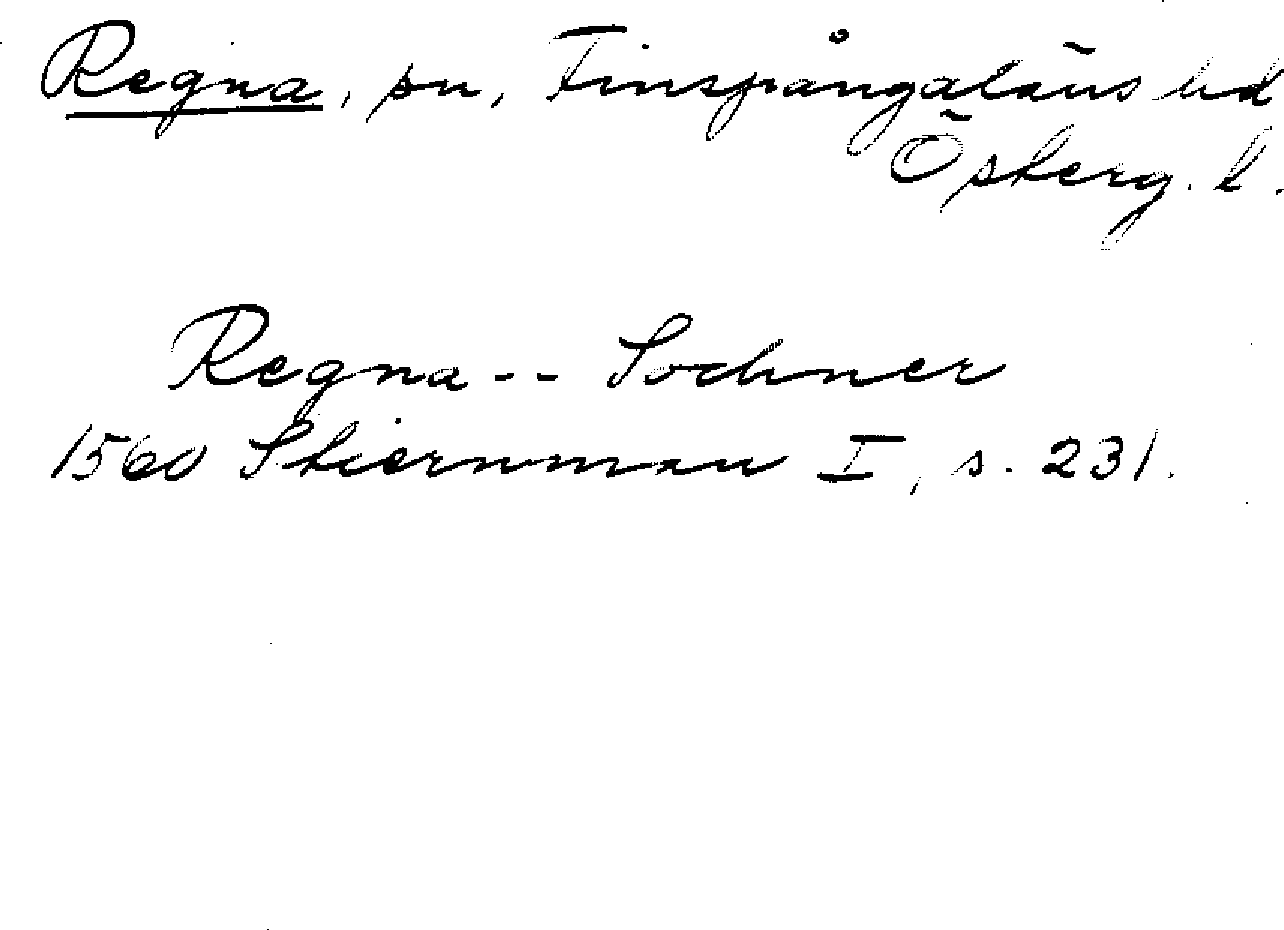 Regna, sn, Finspångaläns hd
Österg. l.
Regna -- Sochner
1560 Stiernman I, s. 231.